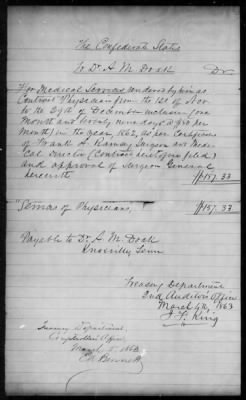 The Confederate States
To Dr. A. M. Doak Dr.
For Medical Services rendered by him as
Contract Physician from the 1st of Nov
to the 29th of December inclusive (one
Month and twenty nine days @ $80 per
Month) in the year 1862, as per Certificate
of Frank A. Ramsey Surgeon and Medi-
cal Director (Contract heretofore filed)
and approval of Surgeon General
herewith $157.33
"Services of Physicians," $157.33
Payable to Dr. A. M. Doak
Knoxville Tenn
Treasury Department
2nd Auditor's Office
March 4th, 1863
King
Treasury Department,
Comptroller's Office,
March 5, 1863